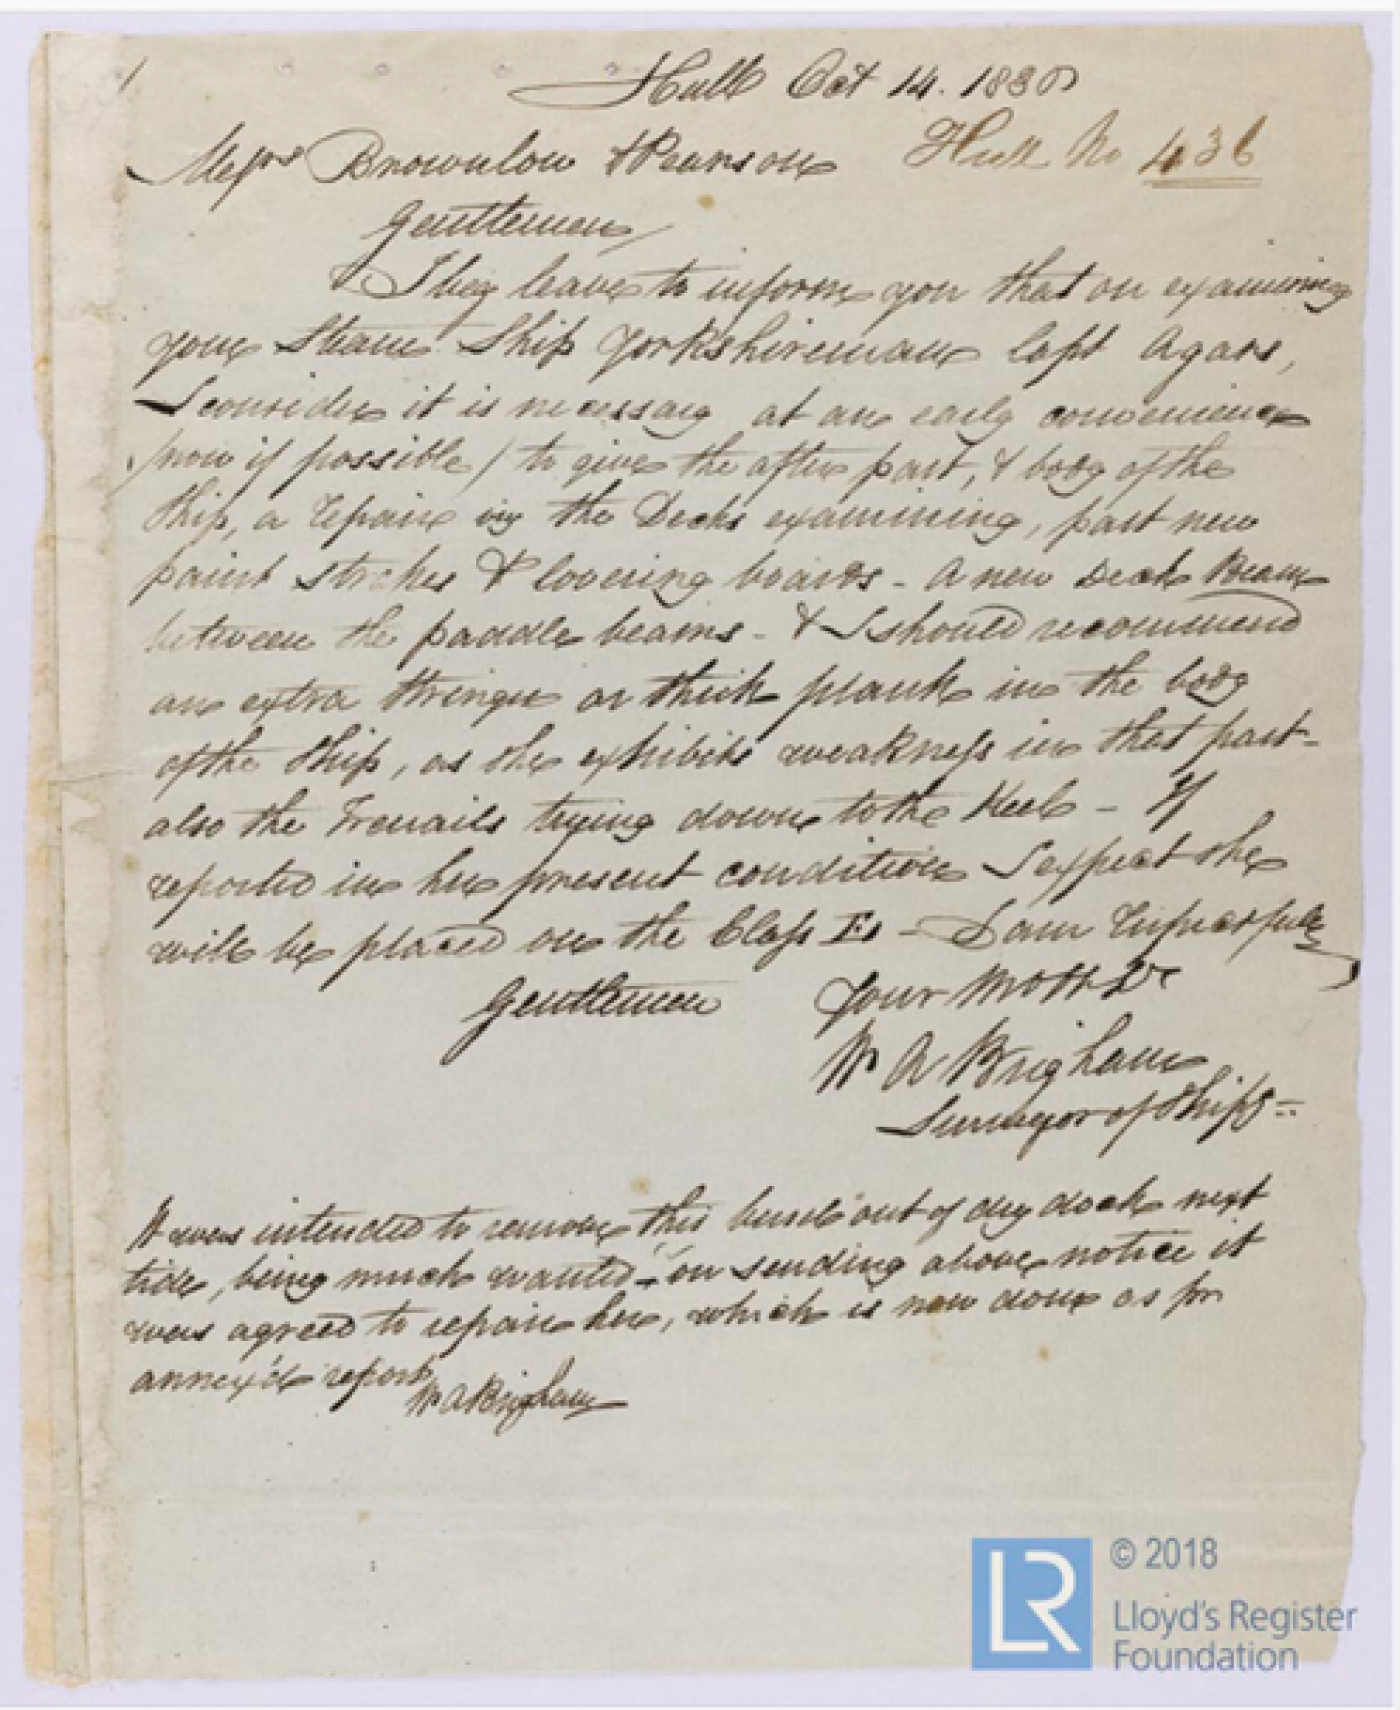 Hull Oct 14. 1836
Messrs Brownlow & Pearson Hull No 436
Gentlemen
I beg leave to inform you that on examining
your Steam Ship Yorkshireman
I consider it is necessary at an early convenience
(now if possible) to give the after part, & body of the
Ship, a repair in the Decks examining, part new
paint strokes & boards - A new Deck Beam
between the paddle beams - & I should recommend
an extra stringer or thick plank in the body
of the Ship, as she exhibits weakness in that part -
also the Trenails trying down to the Keel - If
reported in her present condition I expect she
will be placed on the Class - I am respectfully
Gentlemen Your Mo Obt St
Wm A Brigham
Surveyor of Ships
It was intended to remove this vessel out of dry dock next
tide, being much wanted - on sending above notice it
was agreed to repair her, which is now done as pr
annex'd report
Wm A Brigham
LR
© 2018
Lloyd's Register
Foundation